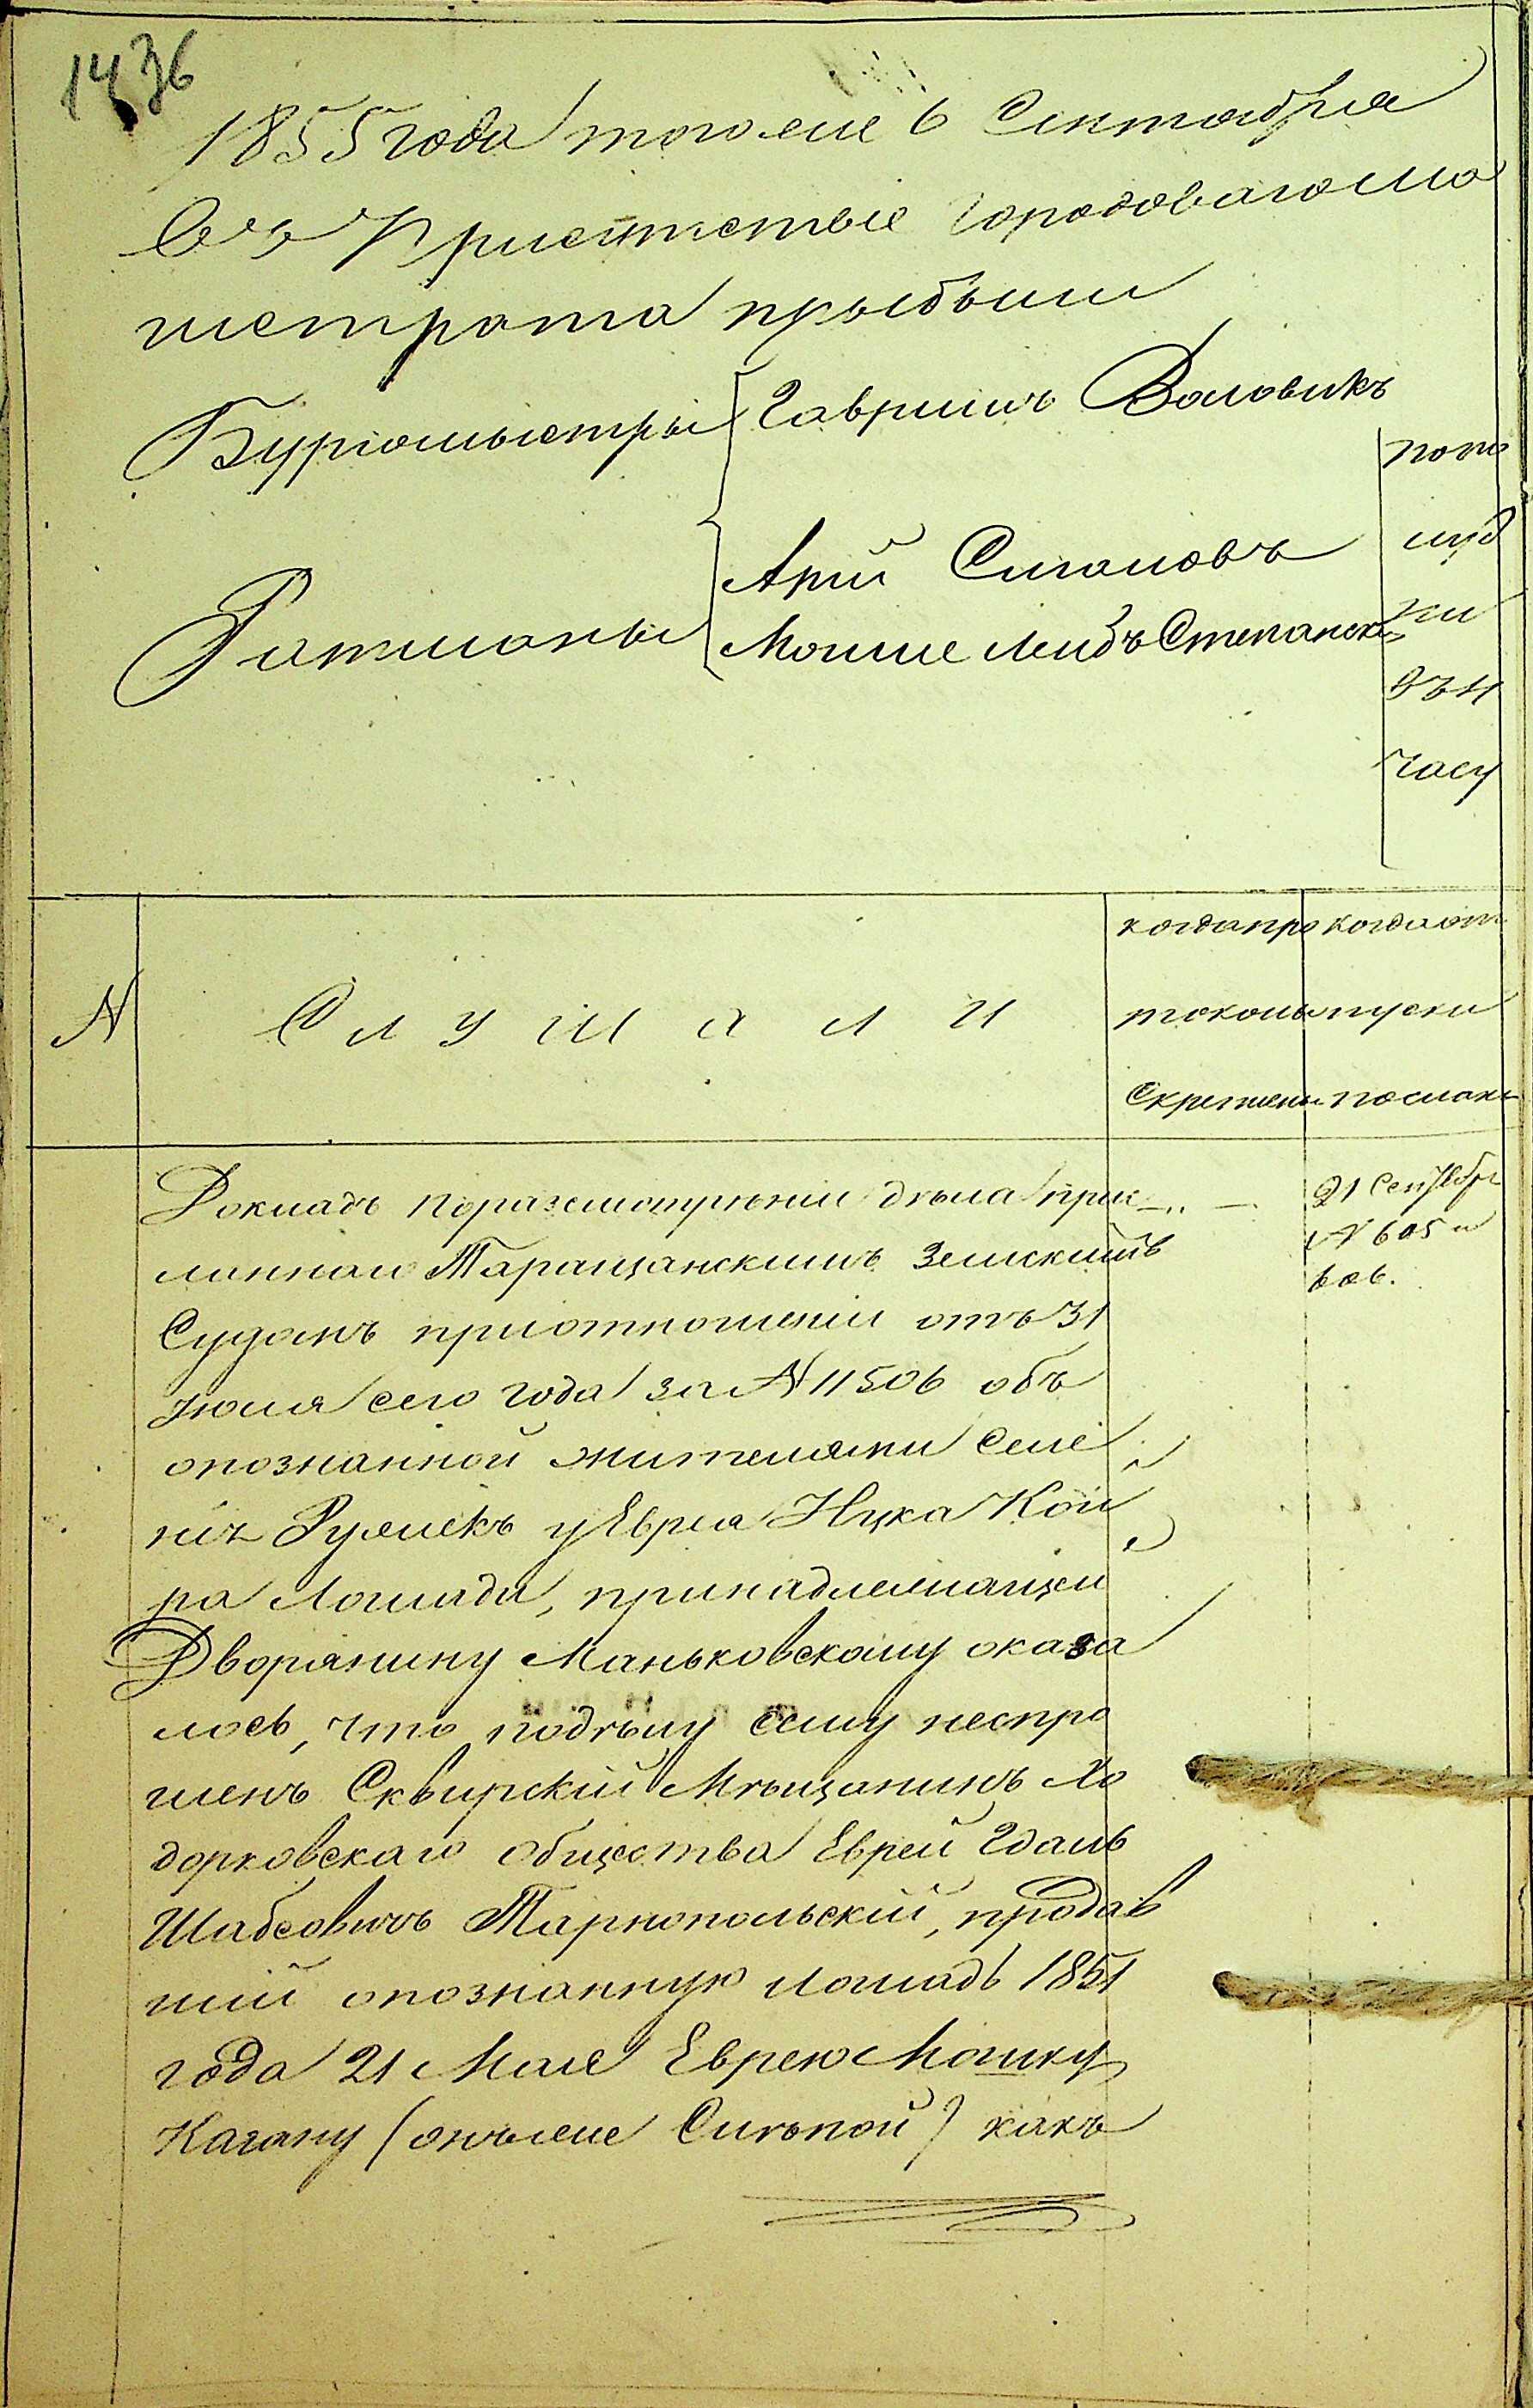 1436
1855 года тогоже 6 Сентября
Въ Присутствіе Городоваго Ма
гистрата прыбыли
Бургомыстры Гаврилъ Воловикъ
Ратманы Арій Сигаловъ
Мошке Лейбъ Степанск
попо
луд
ни
въ 11
часу
N
Слушали
когда про
токолы
Скреплены
когда от
пуски
посланы
Докладъ поразсмотрѣніи дѣла прис
ланнаго Таращанскимъ Земскимъ
Судомъ приотношеніи отъ 31
Июля сего года за N 11506 объ
опознанной жителями селе
нія Ружекъ у Еврея Ицка Кои
ра Лошади, принадлежащей
Дворянину Маньковскому оказа
лось, что подѣлу сему неспро
шенъ Сквирскій Мѣщанинъ Хо
дорковскаго общества Еврей Гдаль
Шабсовичъ Тарнопольскій, продав
шій опознанную лошадь 1851
года 21 Мая Еврею Мошку
Кагану (онъже Слѣпой) какъ
21 Сентябр
N 605 и
606.